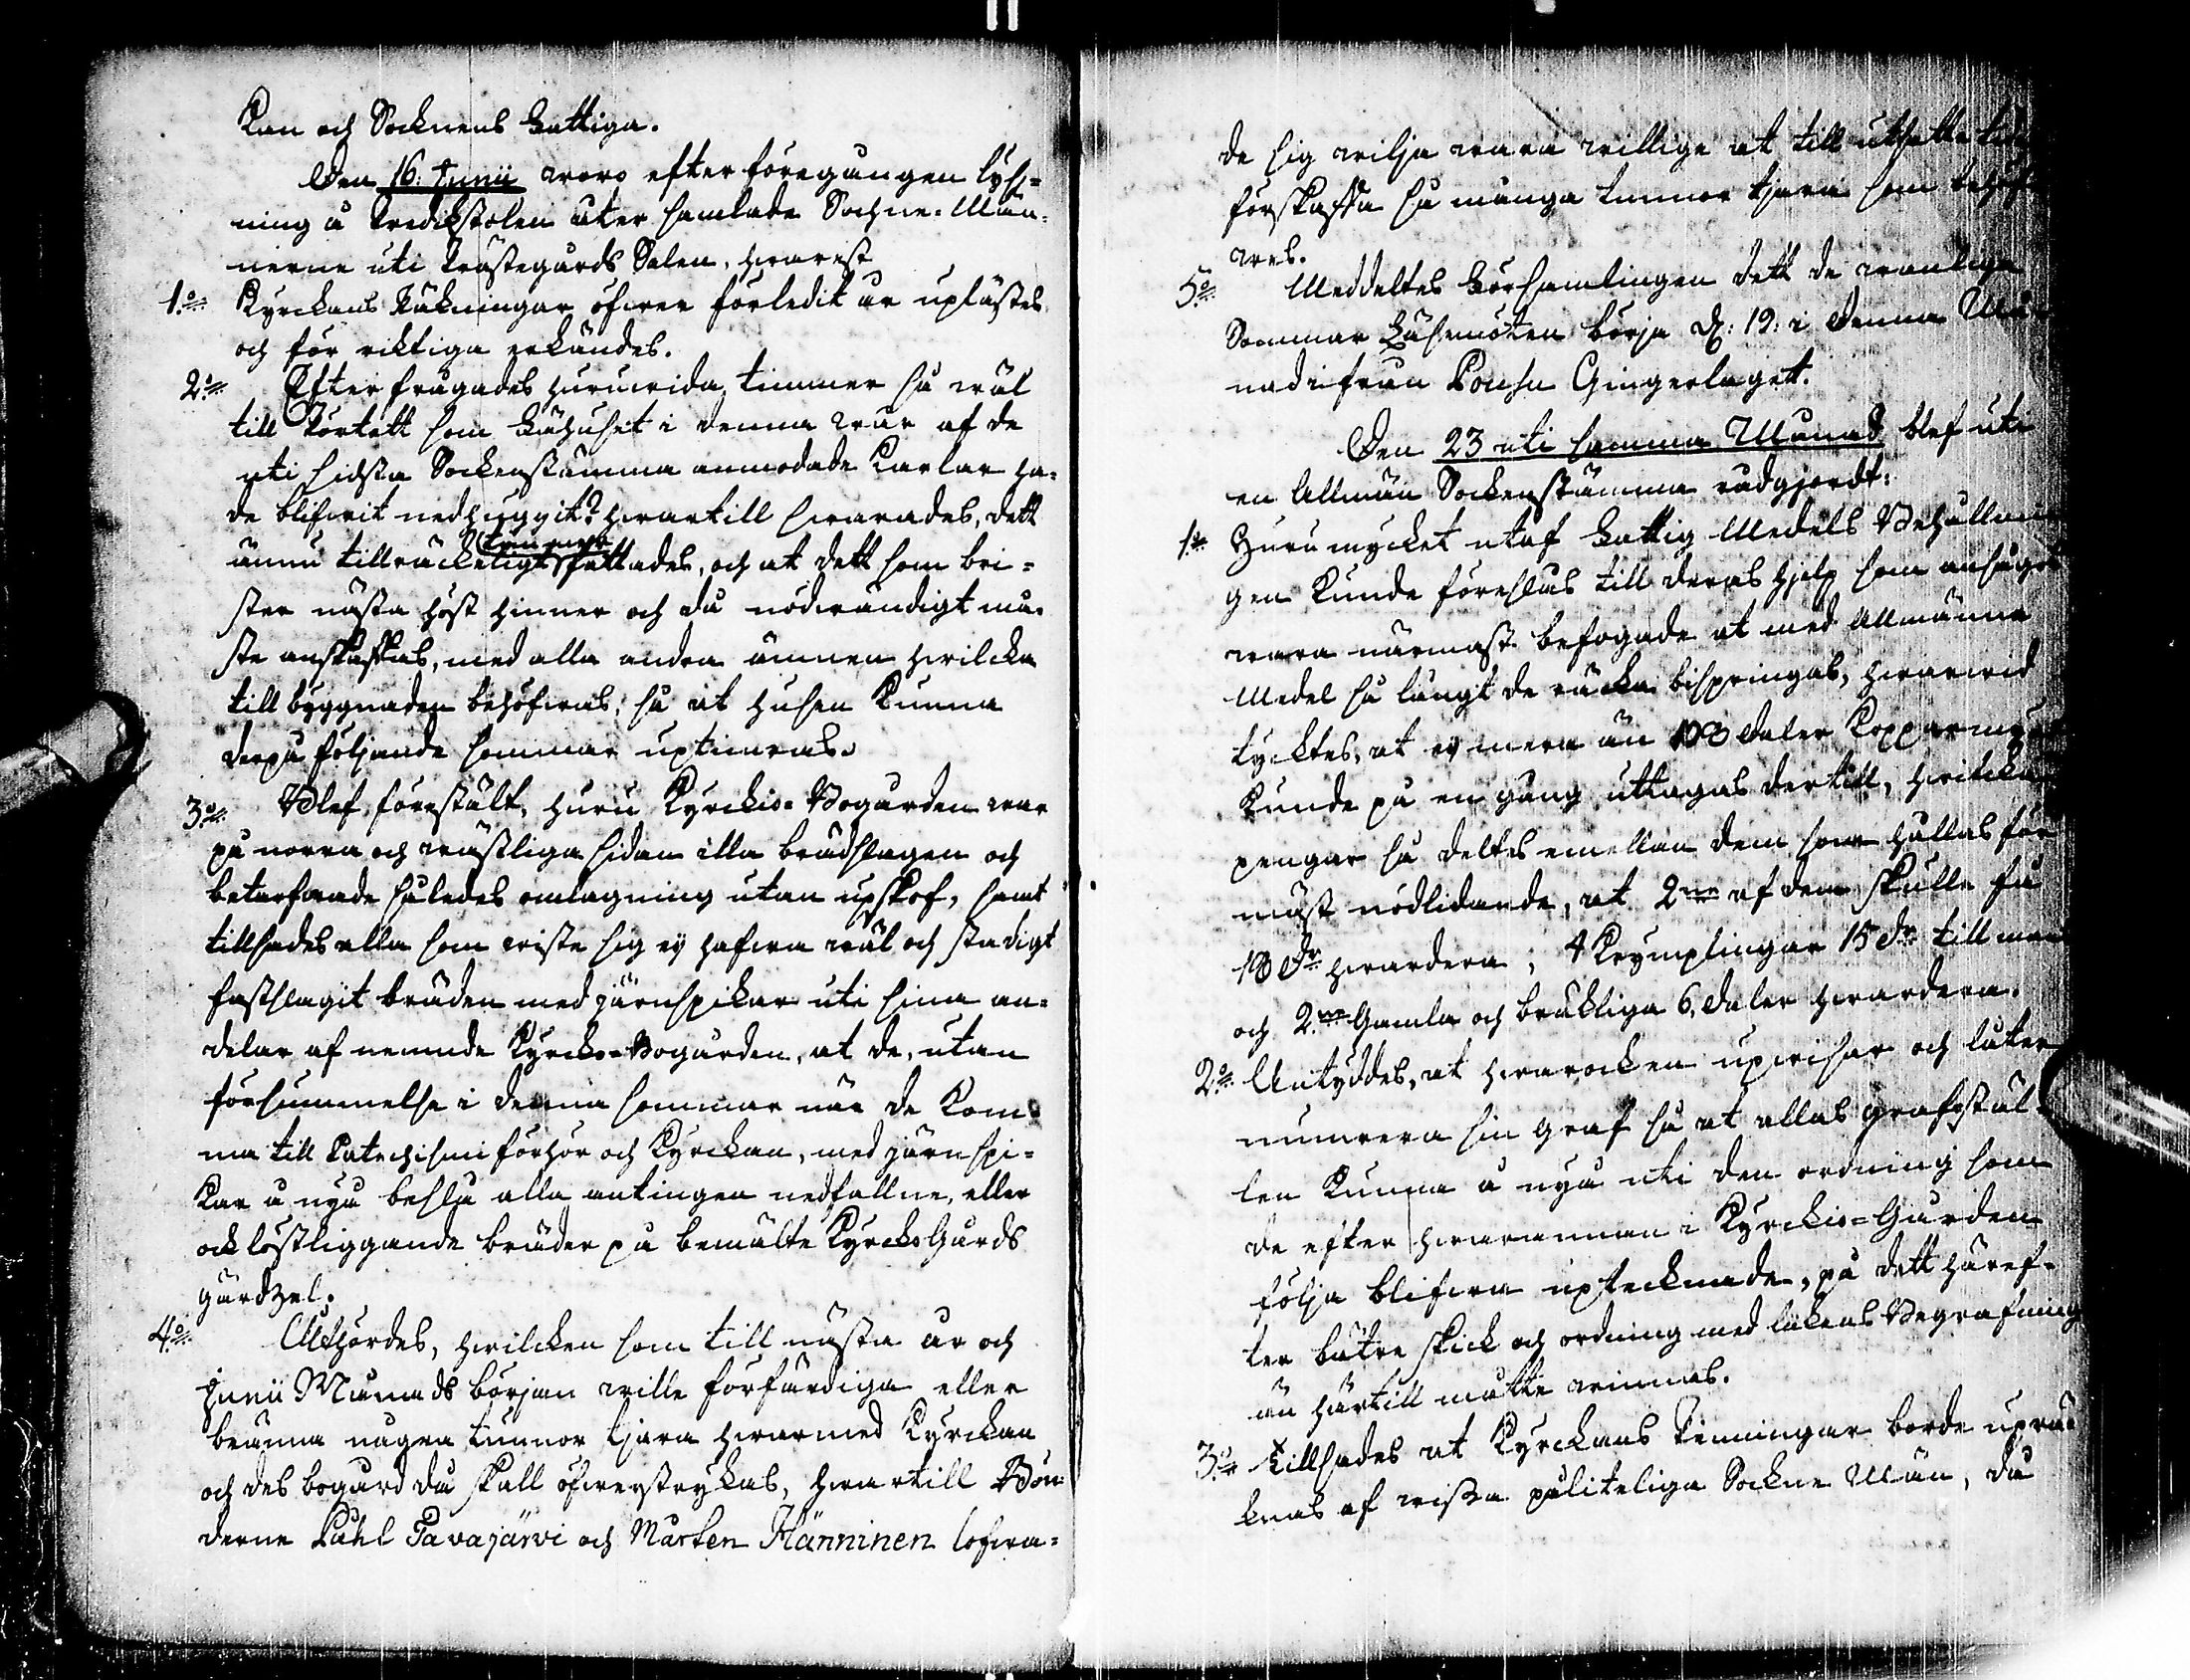 kan och Socknens Fattiga.
Den 16. Junii woro efter föregången lys-
ning å Predikstolen åter samlade Sochne-Män-
nerne uti Prästegårds Salen, hwarest
1:o Kyrckans Räkningar öfwer förledit år uplästes
och för riktiga erkändes.
2:o Efterfrågades huruwida timmer så wäl
till Pörtett som Fähuset i denna wår af de
uti sidsta Sockenstämma anmodade Karlar ha-
de blifwit nedhuggit? hwartill swarades, dett
timmer
ännu tillräckeligt fattades, och at dett som bri-
ster nästa höst hinner och då nödwändigt må-
ste anskaffas, med alla andra ämnen hwilcka
till byggnaden behöfwas, så at husen kunna
derpå följande sommar uptimras.
3:o Blef förestält, huru Kyrckio-Bogården war
på norra och wästliga sidan illa brädslagen och
betarfwade således omlagning utan upskof, samt
tillsades alla som wiste sig ej hafwa wäl och stadigt
fastslagit bräden med järnspikar uti sina an-
delar af nemnde Kyrcko-Bogården, at de, utan
försummelse i denna sommar när de kom-
ma till Catechismi förhör och Kyrckan, med järn spi-
kar å nyo beslå alla antingen nedfallne, eller
ock löstliggande bräder på bemälte Kyrcko Gårds
gärdzel.
4:o Åthördes, hwilcken som till nästa år och
Junii Månads början wille förfärdiga eller
bränna några tunnor tjära hwarmed Kyrckan
och des bogård då skall öfwerstrykas, hwartill Bön-
derne Påhl Pavajärvi och Mårten Hänninen lofwa-
de sig wilja wara willige at till utsatte tid
förskaffa så många tunnor tjära som behöf-
wes.
5:o Meddeltes Församlingen dett de wanliga
Sommar Läsemöten börja d: 19: i denna Må-
nad ifrån Pousu Gingerlaget.
Den 23 uti samma Månad blef uti
en Allmän Sockenstämma rådgjordt:
1:o Huru mycket utaf Fattig Medels Behållnin-
gen kunde föreslås till deras hjelp som ansågos
wara närmast befogade at med Allmänna
Medel så långt de räcka bispringas, hwarwid
tycktes, at ej mera än 108 Daler Kopparmynt
kunde på en gång uttagas dertill, hwilcka
pengar så deltes emellan dem som hållas för
mäst nödlidande, at 2ne af dem skulle få
18 dr hwardera, 4 Krymplingar 15 dr till man
och 2ne Gamla och bräkliga 6 daler hwardera.
2:o Antyddes, at hwarocken upwisar och låter
numrera sin graf så at allas grafstäl-
len kunna å nyo uti den ordning som
de efter hwarannan i Kyrckio-Gården
följa blifwa upteckade, på dett häref-
ter bätre skick och ordning med likens Begrafning
än härtill måtte winnas.
3:o Tillsades at Kyrckans Penningar borde uprä-
knas af wissa påliteliga Sockne Män, då